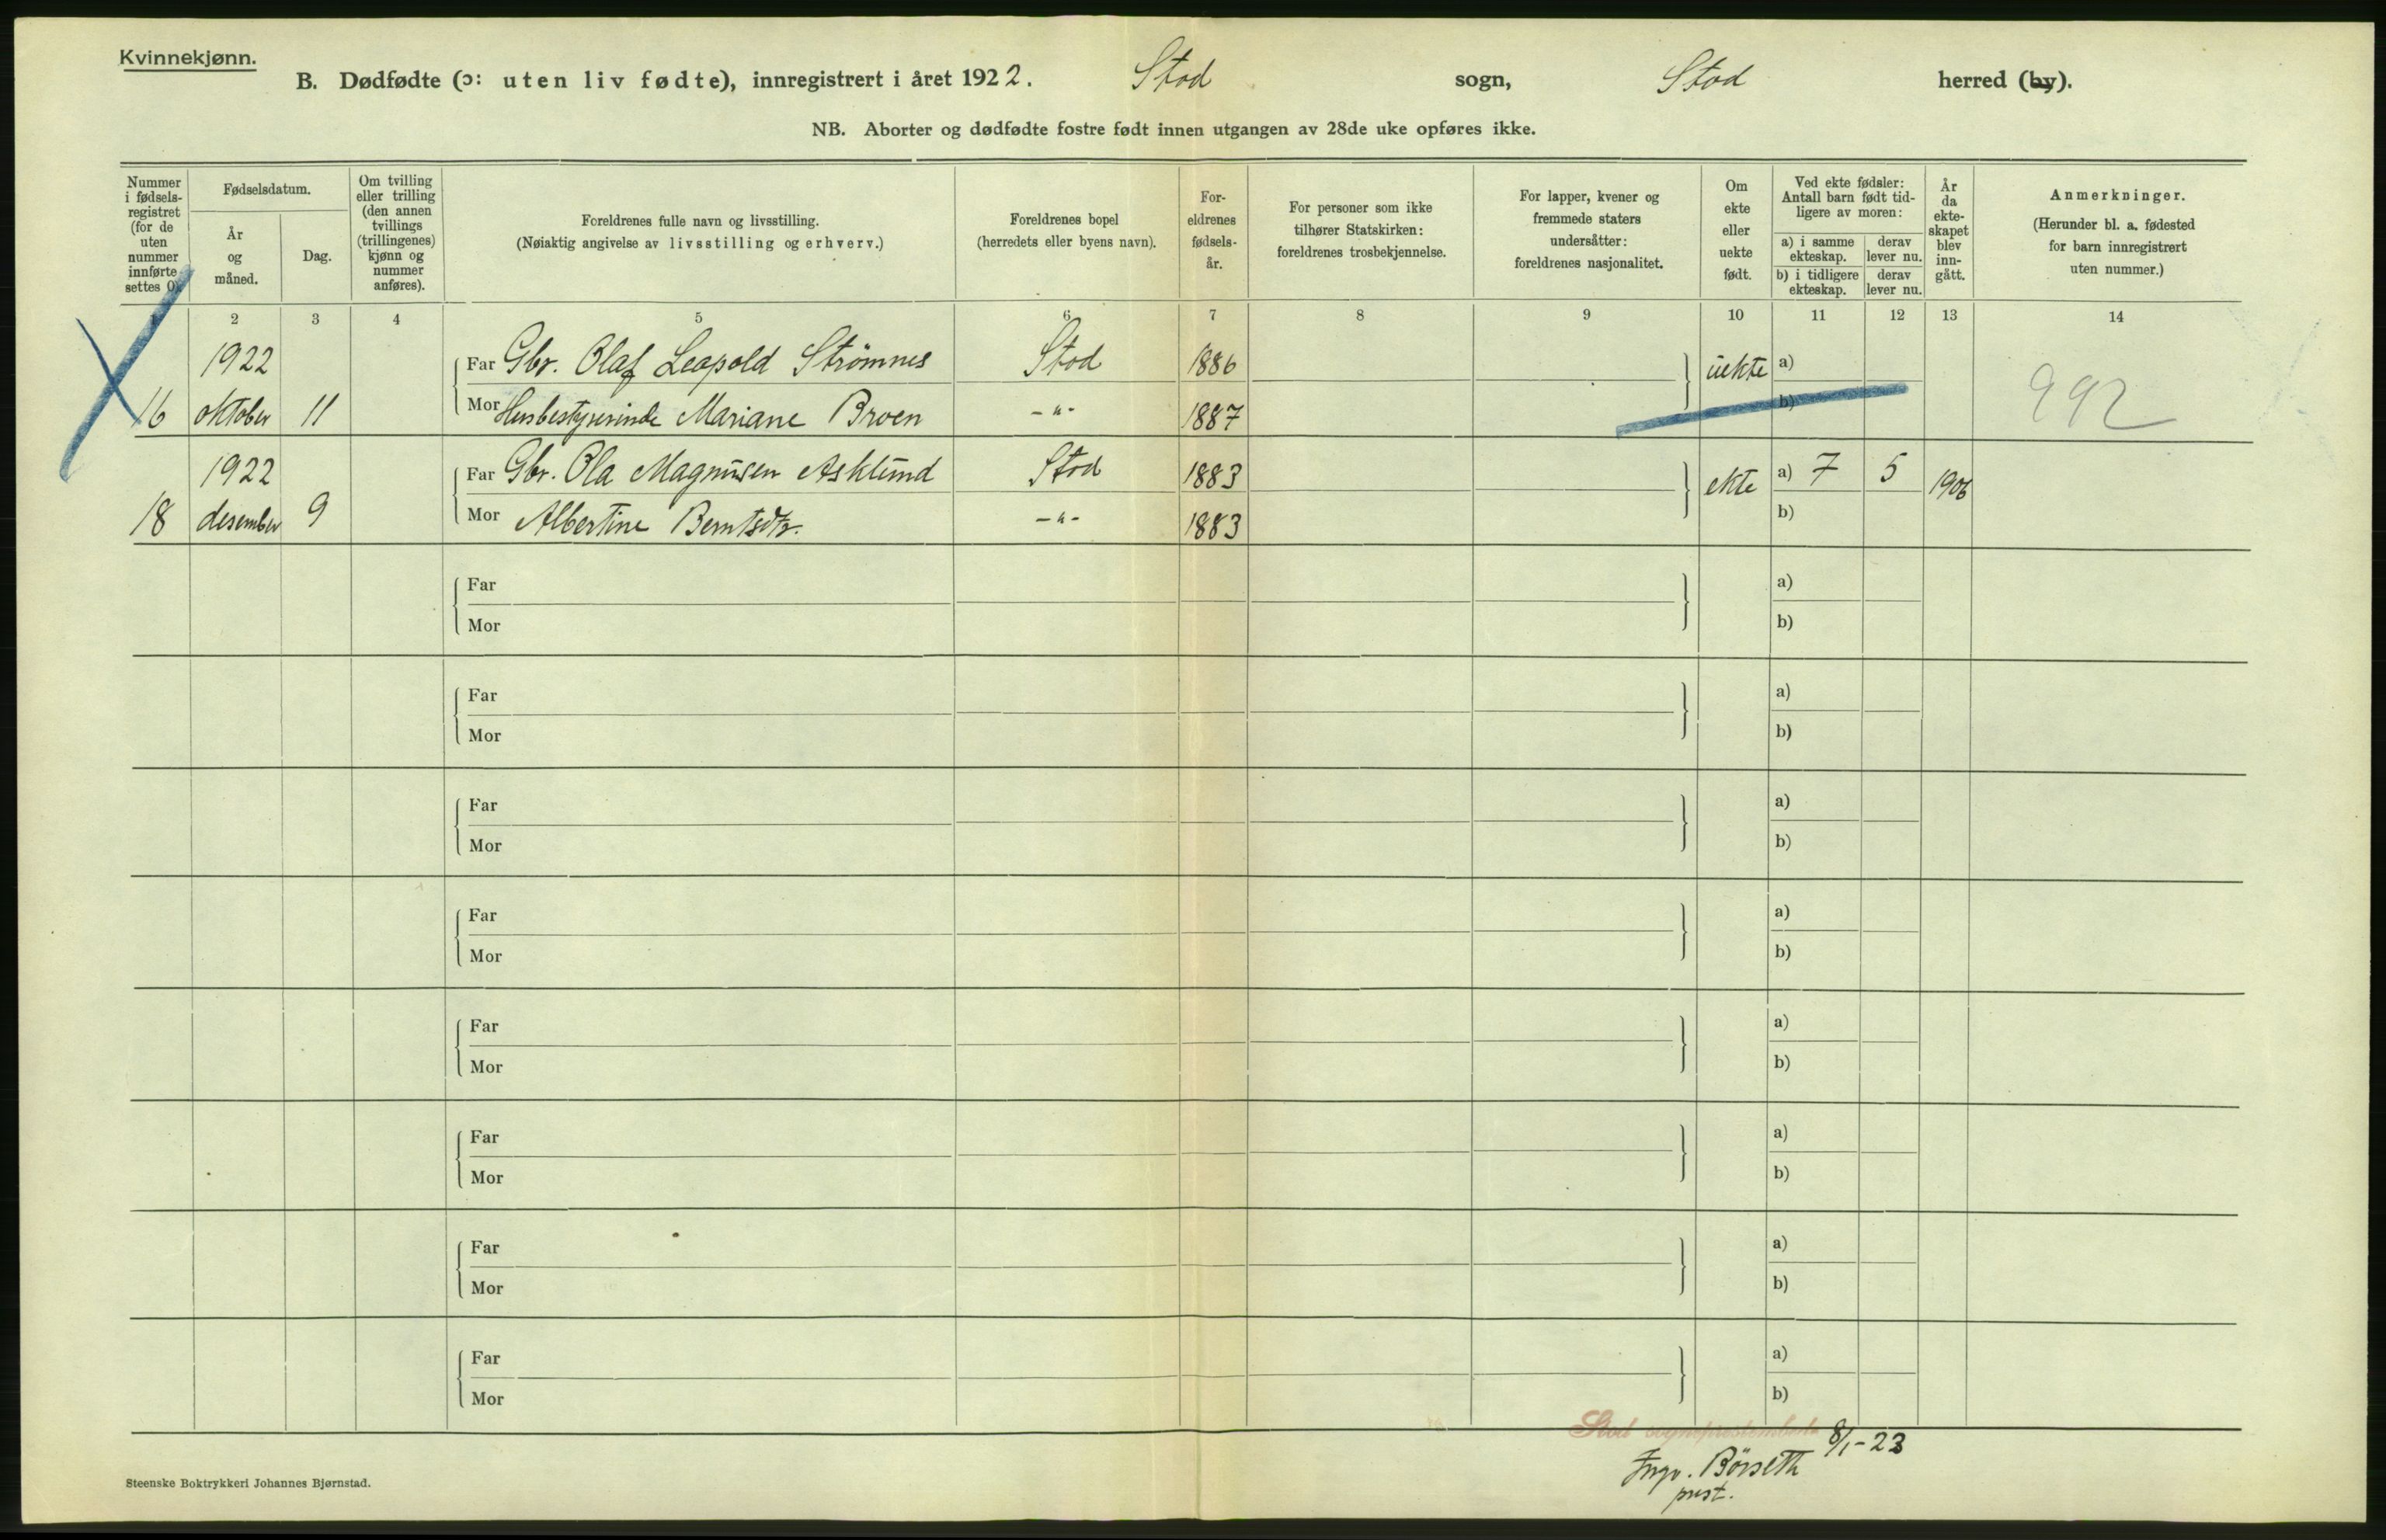 Kvinnekjønn.
B. Dødfødte (ɔ: uten liv fødte), innregistrert i året 1922. Stod sogn, Stod herred (by).
NB. Aborter og dødfødte fostre født innen utgangen av 28de uke opføres ikke.
Nummer i fødsels-registret (for de uten nummer innførte settes 0).
Fødselsdatum.
År og måned.
Dag.
Om tvilling eller trilling (den annen tvillings (trillingenes) kjønn og nummer anføres).
Foreldrenes fulle navn og livsstilling.
(Nøiaktig angivelse av livsstilling og erhverv.)
Foreldrenes bopel
(herredets eller byens navn).
For-eldrenes fødsels-år.
For personer som ikke tilhører Statskirken: foreldrenes trosbekjennelse.
For lapper, kvener og fremmede staters undersåtter: foreldrenes nasjonalitet.
Om ekte eller uekte født.
Ved ekte fødsler: Antall barn født tid-ligere av moren:
a) i samme ekteskap.
derav lever nu.
b) i tidligere ekteskap.
derav lever nu.
År da ekte-skapet blev inn-gått.
Anmerkninger.
(Herunder bl. a. fødested for barn innregistrert uten nummer.)
1 2 3 4 5 6 7 8 9 10 11 12 13 14
1922 Far Gbr. Olaf Leopold Strømnes Stod 1886 uekte a)
16 oktober 11 Mor Husbestyrerinde Mariane Broen -"- 1887 b) 992
1922 Far Gbr. Ola Magnusen Asklund Stod 1883 ekte a) 7 5 1906
18 desember 9 Mor Albertine Berntsdtr. -"- 1883 b)
Far a)
Mor b)
Far a)
Mor b)
Far a)
Mor b)
Far a)
Mor b)
Far a)
Mor b)
Far a)
Mor b)
Far a)
Mor b)
Far a)
Mor b)
Stod sogneprestembede 8/1-23
Ingv. Börseth
prest.
Steenske Boktrykkeri Johannes Bjørnstad.